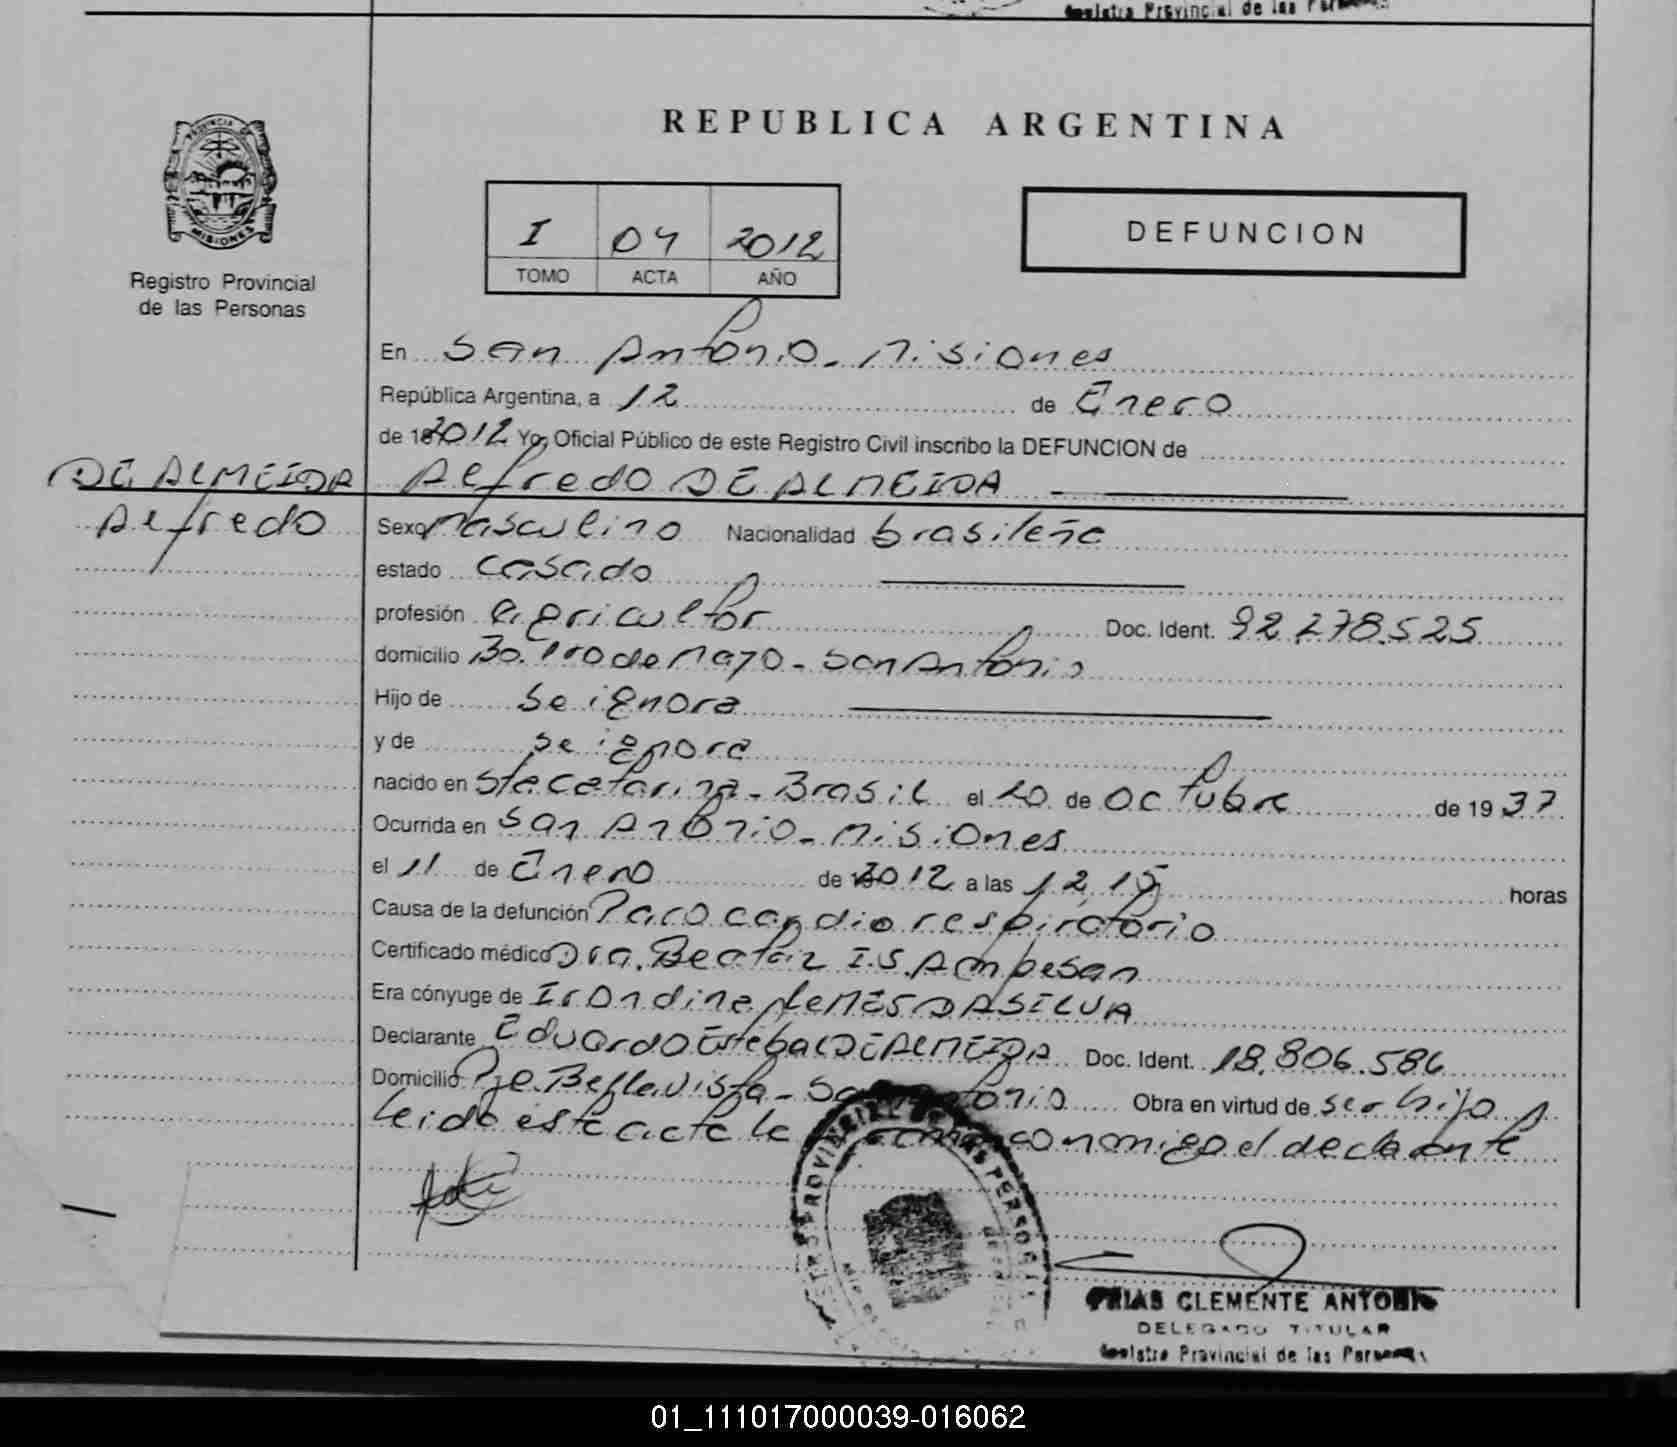 Registro Provincial de las Personas
PROVINCIA DE
MISIONES
Registro Provincial
de las Personas
REPUBLICA ARGENTINA
I 04 2012
TOMO ACTA AÑO
DEFUNCION
En San Antonio - Misiones
República Argentina, a 12 de Enero
de 2012 Yo, Oficial Público de este Registro Civil inscribo la DEFUNCION de
DE ALMEIDA Alfredo DE ALMEIDA
Alfredo
Sexo Masculino Nacionalidad brasileña
estado casado
profesión agricultor Doc. Ident. 92.278.525
domicilio Bo. 1ro de Mayo - San Antonio
Hijo de se ignora
y de se ignora
nacido en Sta Catarina - Brasil el 20 de Octubre de 1937
Ocurrida en San Antonio - Misiones
el 11 de Enero de 2012 a las 12,15 horas
Causa de la defunción Paro cardio respiratorio
Certificado médico Dra. Beatriz I.S. Ampesan
Era cónyuge de Irondina LEMES DA SILVA
Declarante Eduardo Esteba DE ALMEIDA Doc. Ident. 18.806.586
Domicilio Pje. Bella Vista - San Antonio Obra en virtud de ser hijo
leida este acta la firma conmigo el declarante
PROVINCIAL DE LAS PERSONAS
CLEMENTE ANTONIO
DELEGADO TITULAR
Registro Provincial de las Personas
01_111017000039-016062